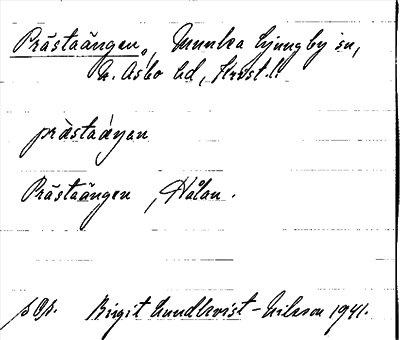 Prästaängen, Munka Ljungby sn,
N. Åsbo hd, Krist. l.
prästaáŋan
Prästaängen, Hålan.
pOp. Birgit Lundkvist-Nilsson 1941.